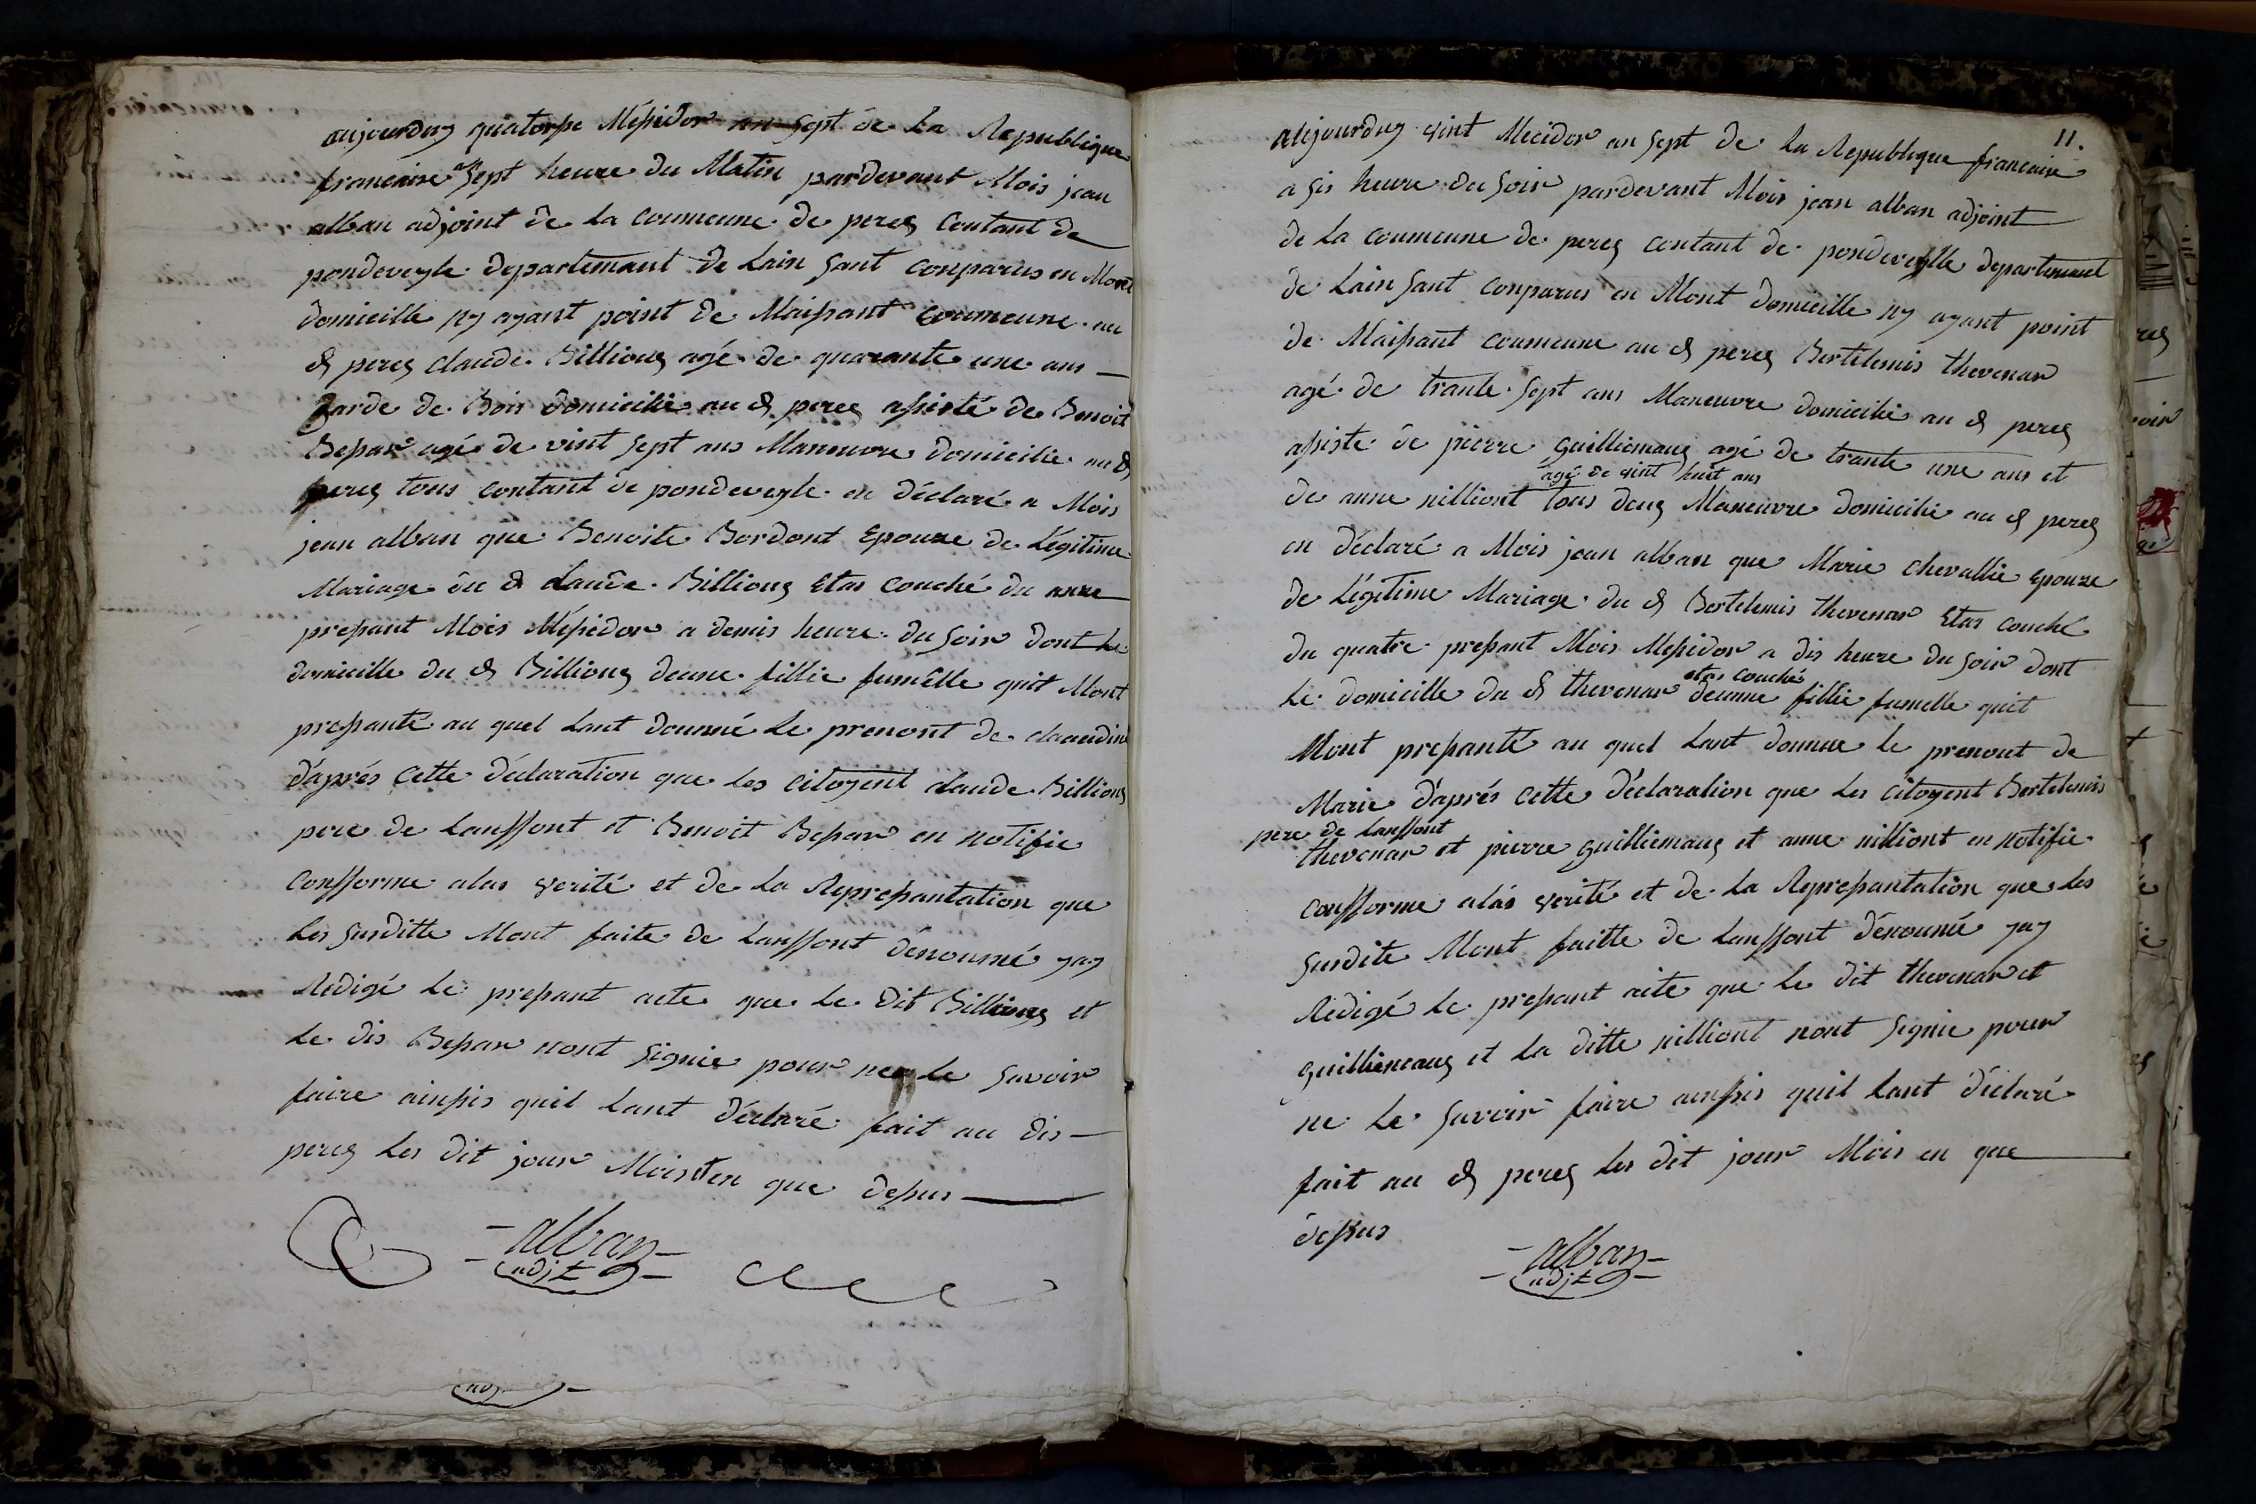 aujourduy quatorse Messidor an sept de La Republique
francaise a sept heure du Matin pardevant Mois jean
alban adjoint de La coumeune de perex contant de
pondeveyle departemant de Lain sant conparus en Mont
domicille ny ayant point de Maissant coumeune au
d perex claude Billioux agé de quarante une ans
garde de Bois domicilie au d perex assisté de Benoit
Bessar agé de vint sept ans Maneuvre domicilie au d
perex tous contant de pondeveyle en déclaré a Mois
jean alban que Benoite Bordont Epouze de Légitime
Mariage du d claude Billioux Etas couché du
pressant Mois Messidor a demis heure du soir dont le
domicille du d Billioux deune fillie fumelle quit Mont
pressanté au quel Lant dounné Le prenont de claudine
d'aprés cette déclaration que Les citoyent claude Billioux
pere de Lanffont et Benoit Bessar en notifie
confforme alas verité et de La Represantation que
Les surditte Mont faite de Lanffont dénoumé yay
Redigé Le pressant acte que Le dit Billioux et
Le dis Bessar nont signie pour ne Le savoir
faire ainssis quil Lant déclaré fait au dis
perex Les dit jour Mois en que dessus
alban
adjt
11.
aujourduy vint Mecidor an sept de La Republique francaise
a sis heure du soir pardevant Mois jean alban adjoint
de La coumeune de perex contant de pondeveylle departemant
de Lain sant conparus en Mont domicille ny ayant point
de Maissant coumeune au d perex Bertelemis thevenar
agé de trante sept ans Maneuvre domicilie au d perex
assiste de pierre guilliemaux agé de trante une ans et
agé de vint huit ans
de anne nilliont tous deux Maneuvre domicilie au d perex
en déclaré a Mois jean alban que Marie chevallie Epouze
de Légitime Mariage du d Bertelemis thevenar Etas couché
du quatre pressant Mois Messidor a dis heure du soir dont
etas couché
Le domicille du d thevenar deunne fillie fumelle quit
Mont pressanté au quel Lant donnue le prenont de
Marie d'aprés cette déclaration que Les citoyent Bertelemis
pere de Lanffont
thevenar et pierre guilliemaux et anne nilliont en notifie
confforme alás verité et de La Represantation que Les
surdite Mont faitte de Lanffont dénoumé yay
Redigé Le pressant acte que Le dit thevenar et
guilliemaux et La ditte nilliont nont signie pour
ne Le savoir faire ainssis quil Lant déclaré
fait au d perex Les dit jour Mois en que
dessus
alban
adjt